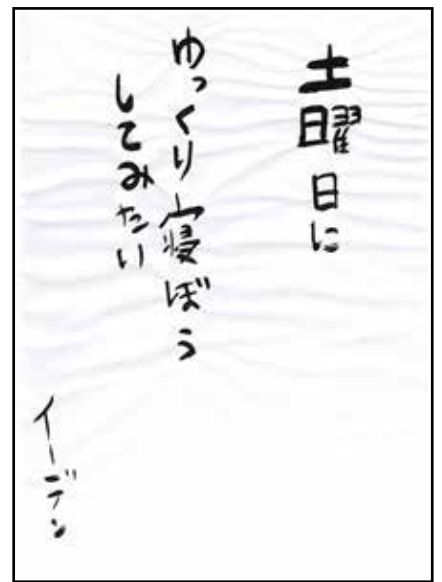 土曜日に
ゆっくり寝ぼう
してみたい
イーデン